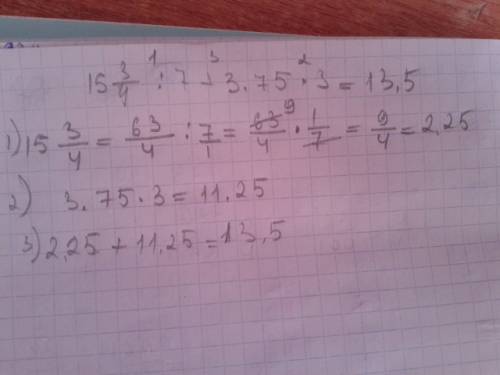 15 3/4 : 7 + 3.75 · 3 = 13,5
1) 15 3/4 = 63/4 : 7/1 = 63/4 · 1/7 = 9/4 = 2,25
2) 3.75 · 3 = 11.25
3) 2,25 + 11,25 = 13,5